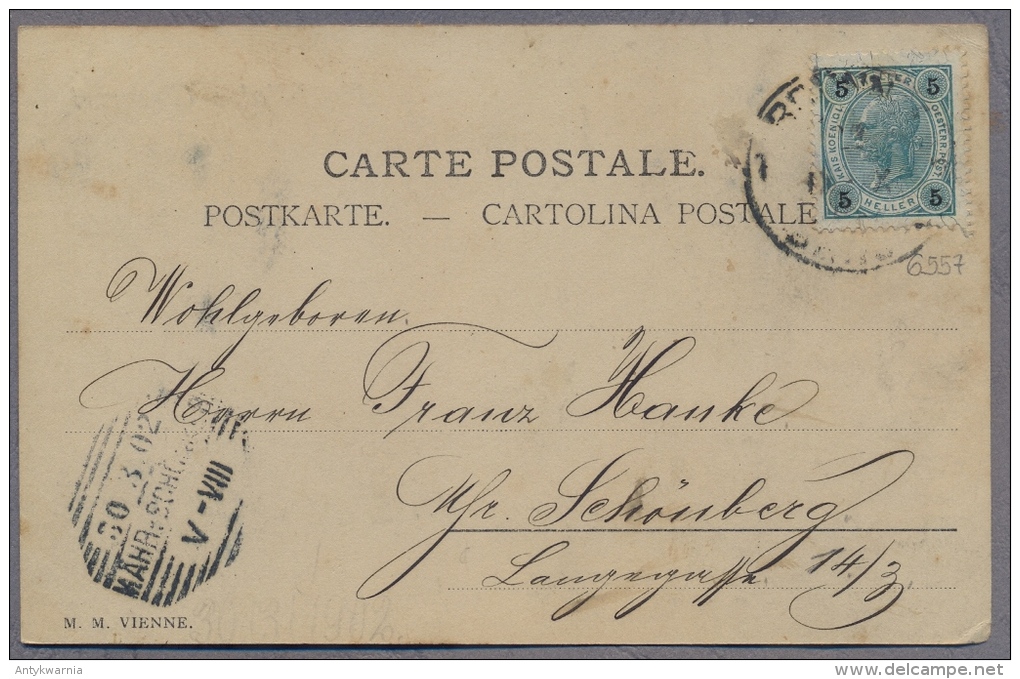 CARTE POSTALE.
POSTKARTE. — CARTOLINA POSTALE
5 HELLER 5
KAIS KOENIGL OESTERR. POST
5 HELLER 5
6557
Wohlgeboren
Herrn Franz Hanke
Mr. Schönberg
Langegasse 14/3
30 3 02
MÄHR. SCHÖNBERG
V-VIII
M. M. VIENNE.
30/3/1902
Antykwarnia
delcampe.net